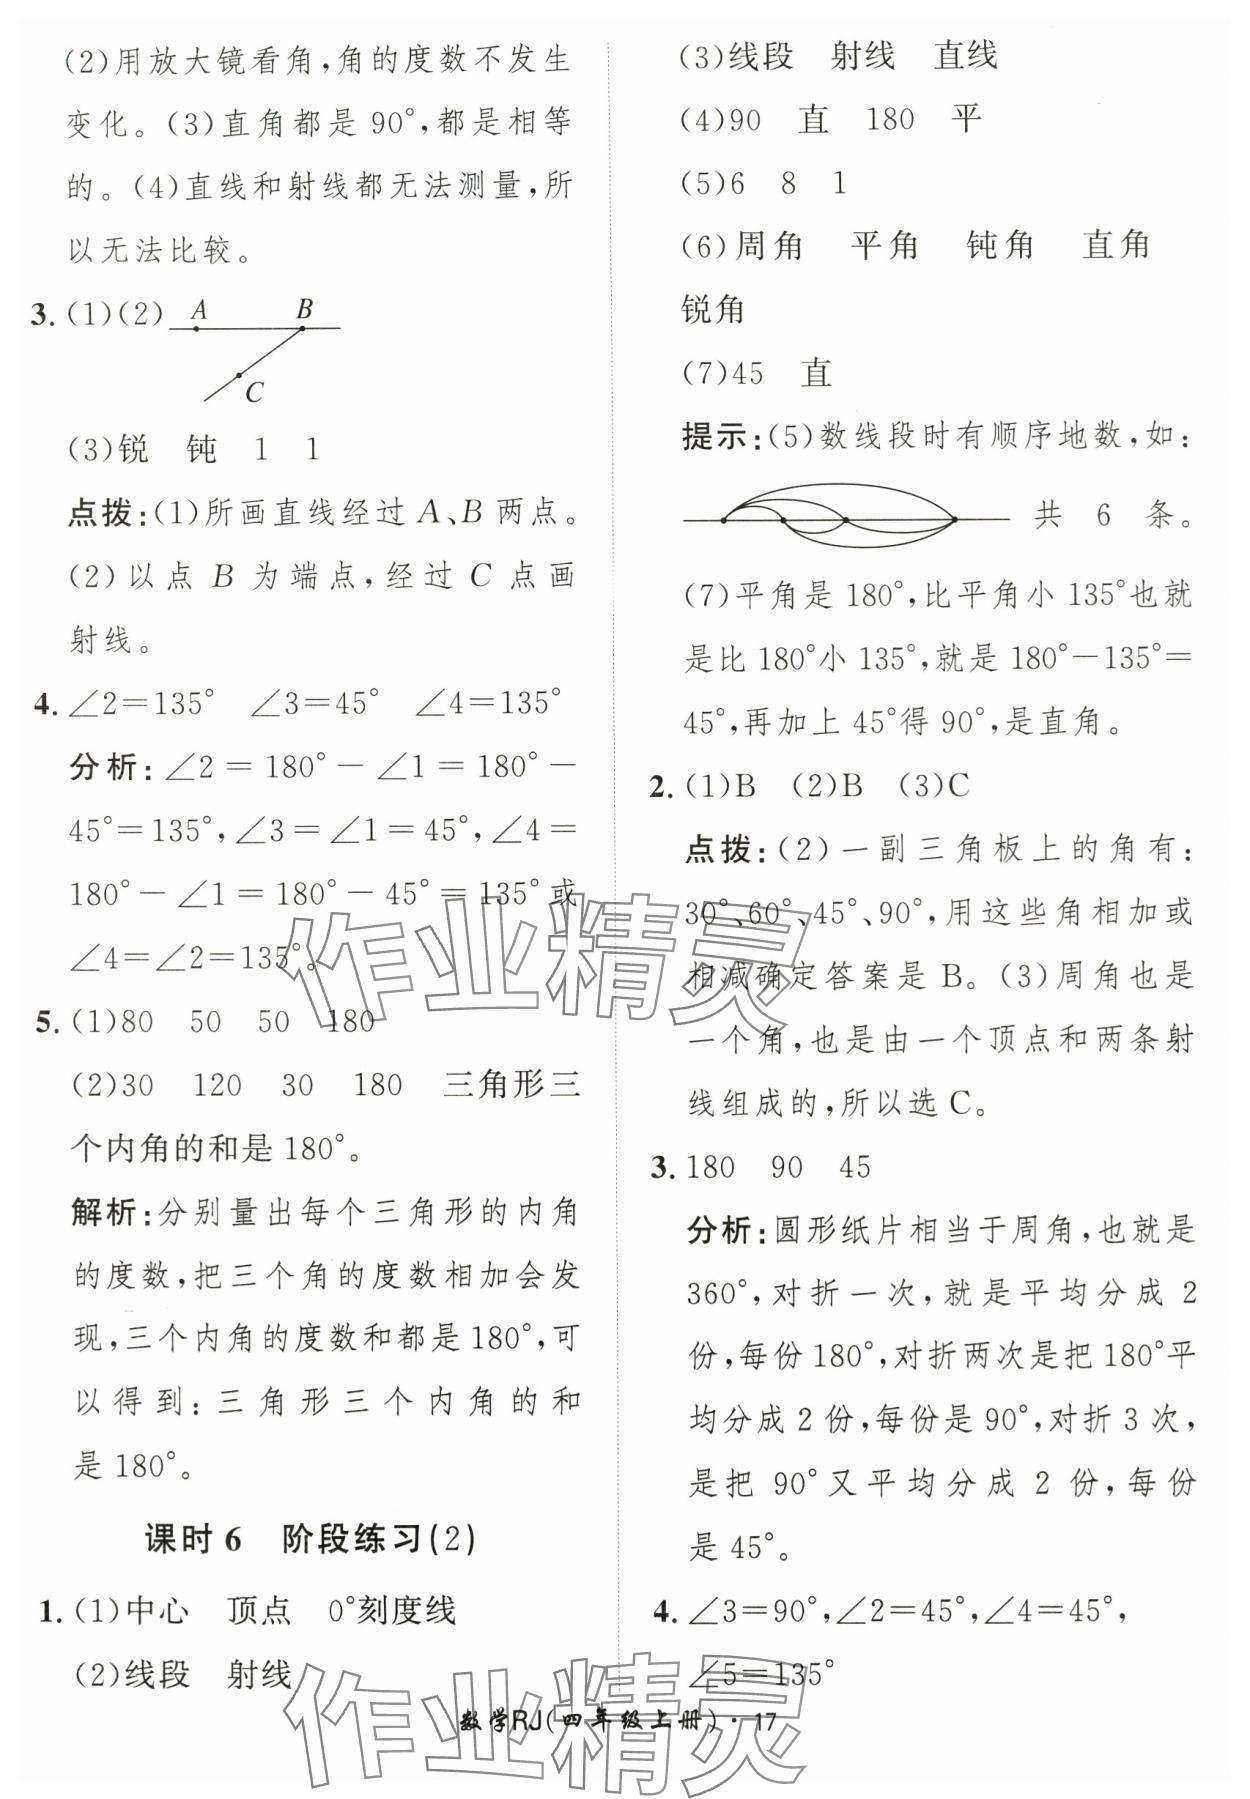 (2)用放大镜看角,角的度数不发生
变化。(3)直角都是90°,都是相等
的。(4)直线和射线都无法测量,所
以无法比较。
3. (1)(2) A B
C
(3)锐 钝 1 1
点拨:(1)所画直线经过A、B两点。
(2)以点B为端点,经过C点画
射线。
4. ∠2=135° ∠3=45° ∠4=135°
分析:∠2=180°-∠1=180°-
45°=135°,∠3=∠1=45°,∠4=
180°-∠1=180°-45°=135°或
∠4=∠2=135°。
5. (1)80 50 50 180
(2)30 120 30 180 三角形三
个内角的和是180°。
解析:分别量出每个三角形的内角
的度数,把三个角的度数相加会发
现,三个内角的度数和都是180°,可
以得到:三角形三个内角的和
是180°。
课时6 阶段练习(2)
1. (1)中心 顶点 0°刻度线
(2)线段 射线
(3)线段 射线 直线
(4)90 直 180 平
(5)6 8 1
(6)周角 平角 钝角 直角
锐角
(7)45 直
提示:(5)数线段时有顺序地数,如:
共 6 条。
(7)平角是180°,比平角小135°也就
是比180°小135°,就是180°-135°=
45°,再加上45°得90°,是直角。
2. (1)B (2)B (3)C
点拨:(2)一副三角板上的角有:
30°、60°、45°、90°,用这些角相加或
相减确定答案是B。(3)周角也是
一个角,也是由一个顶点和两条射
线组成的,所以选C。
3. 180 90 45
分析:圆形纸片相当于周角,也就是
360°,对折一次,就是平均分成2
份,每份180°,对折两次是把180°平
均分成2份,每份是90°,对折3次,
是把90°又平均分成2份,每份
是45°。
4. ∠3=90°,∠2=45°,∠4=45°,
∠5=135°
数学RJ(四年级上册)·17
作业精灵
作业精灵